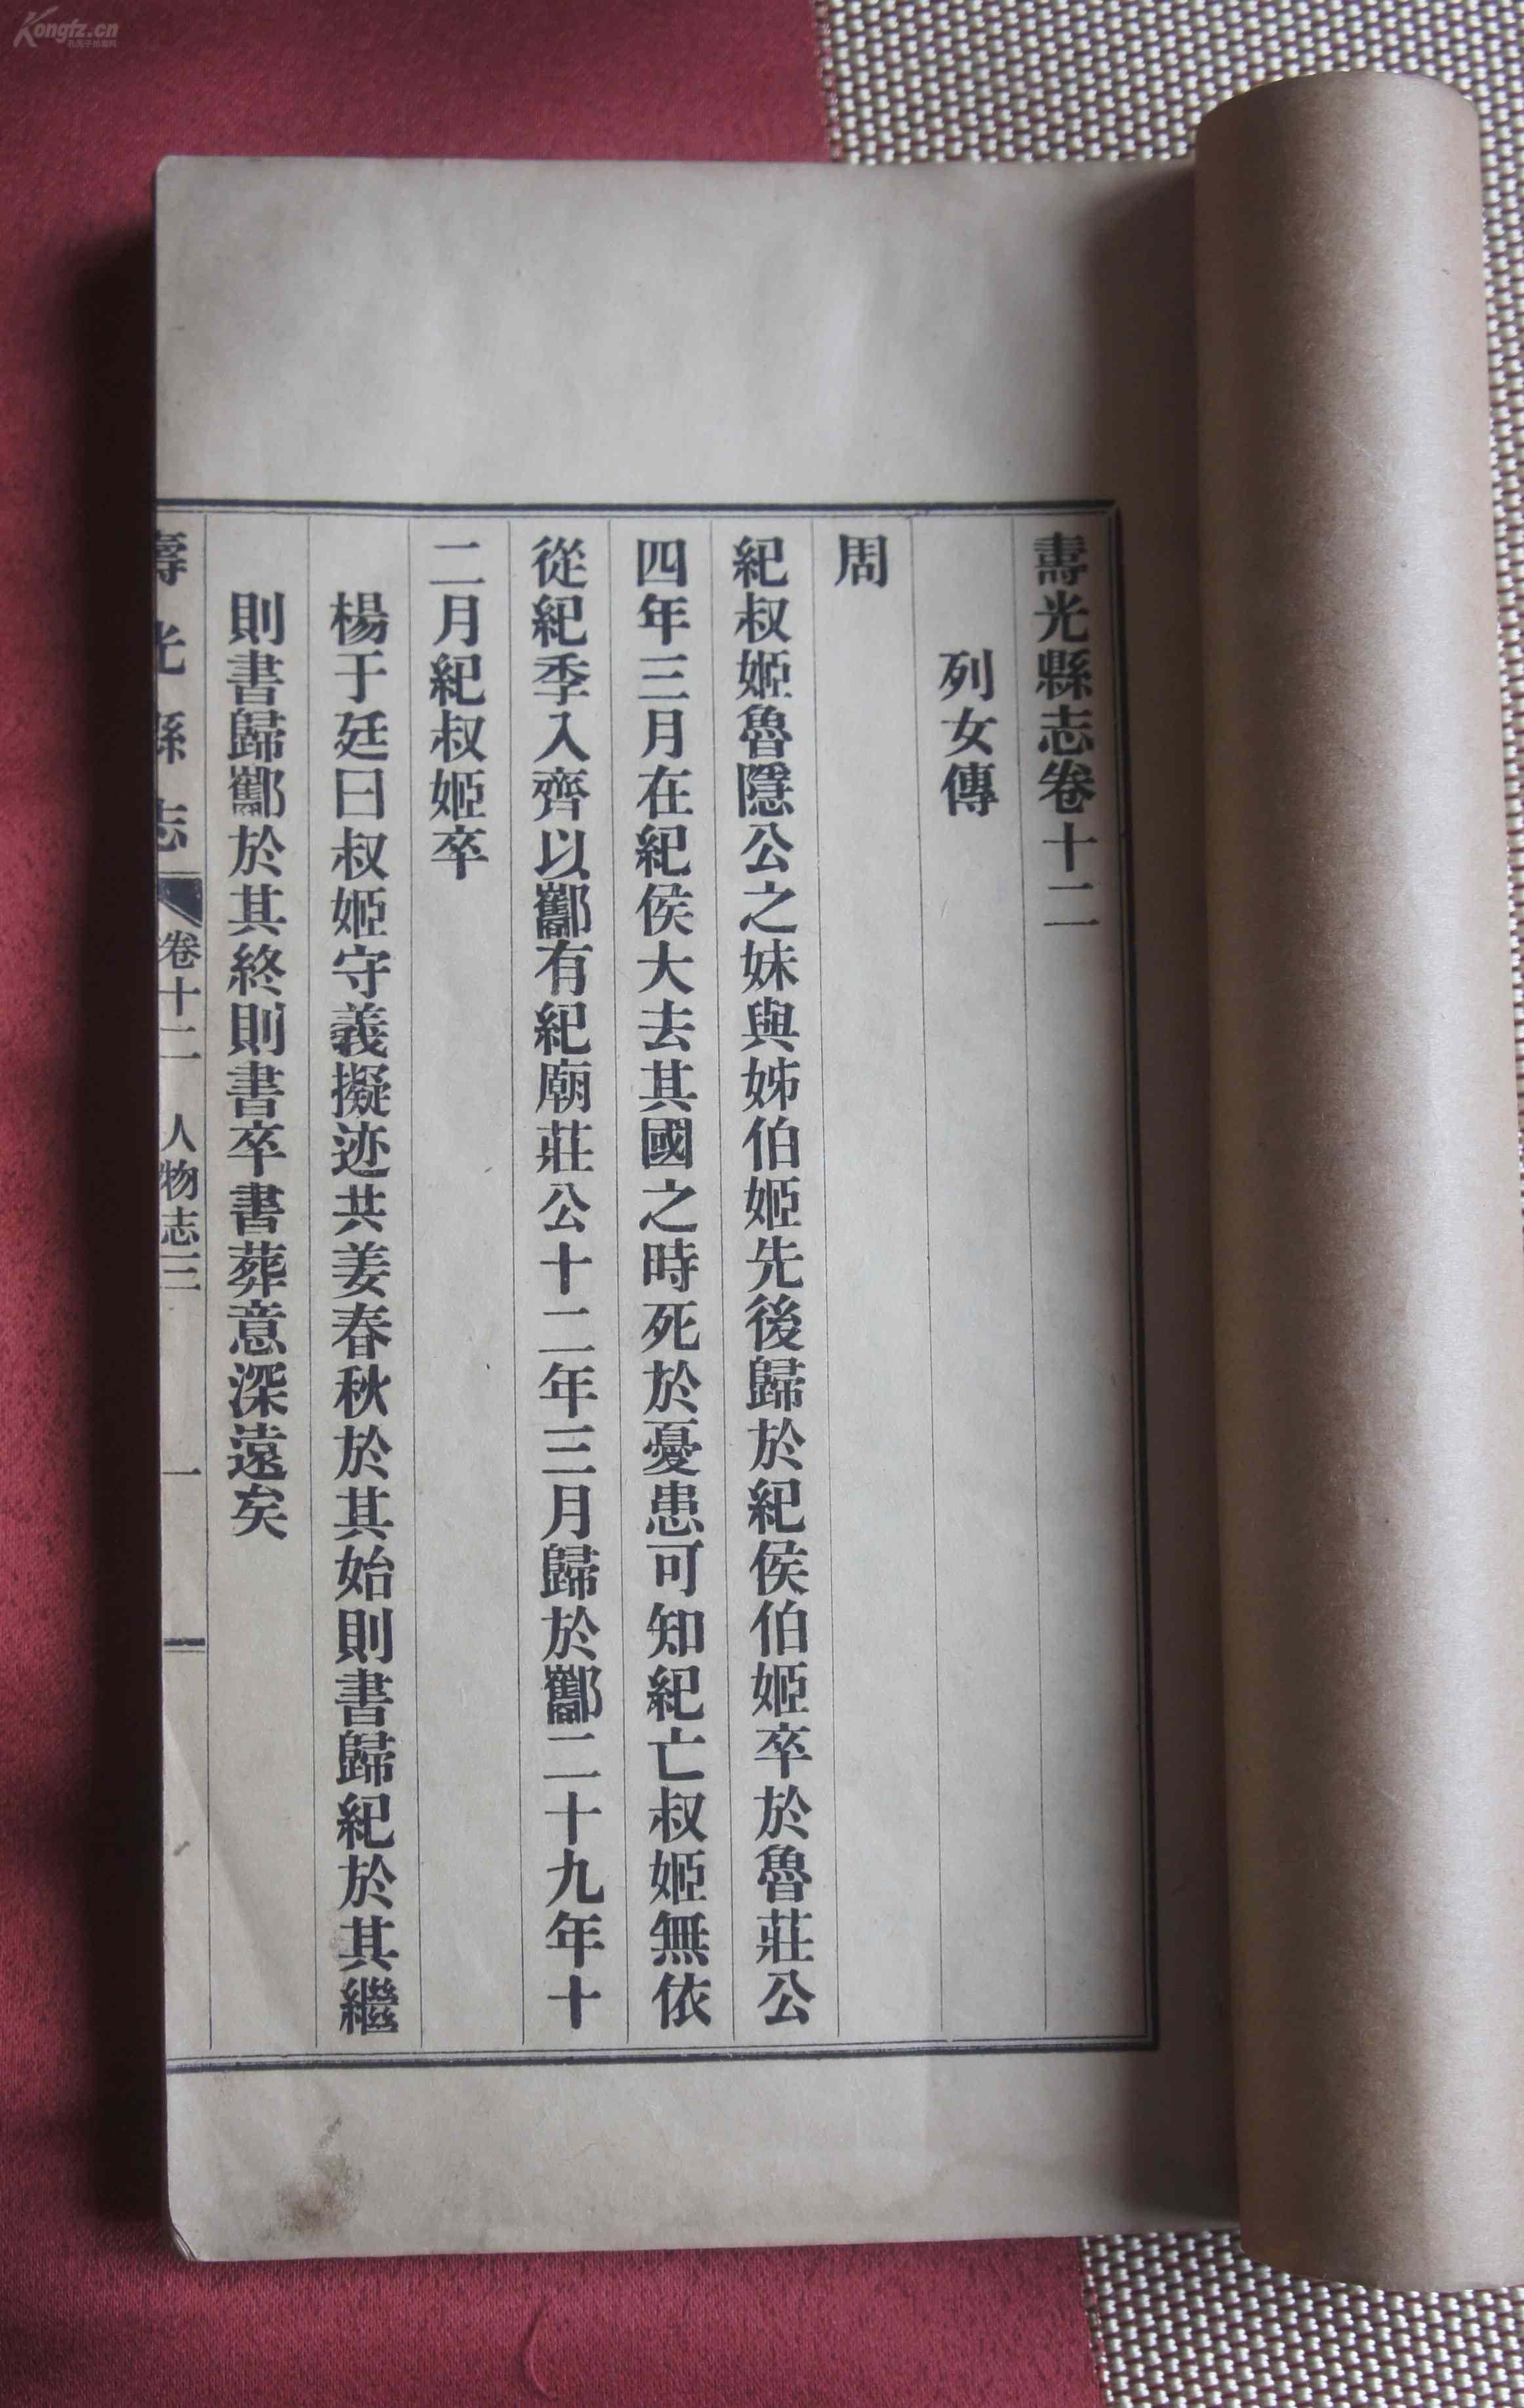 壽光縣志卷十二
列女傳
周
紀叔姬魯隱公之妹與姊伯姬先後歸於紀侯伯姬卒於魯莊公
四年三月在紀侯大去其國之時死於憂患可知紀亡叔姬無依
從紀季入齊以酅有紀廟莊公十二年三月歸於酅二十九年十
二月紀叔姬卒
楊于廷曰叔姬守義擬迹共姜春秋於其始則書歸紀於其繼
則書歸酅於其終則書卒書葬意深遠矣
壽光縣志 卷十二 人物志三 一
Kongfz.cn